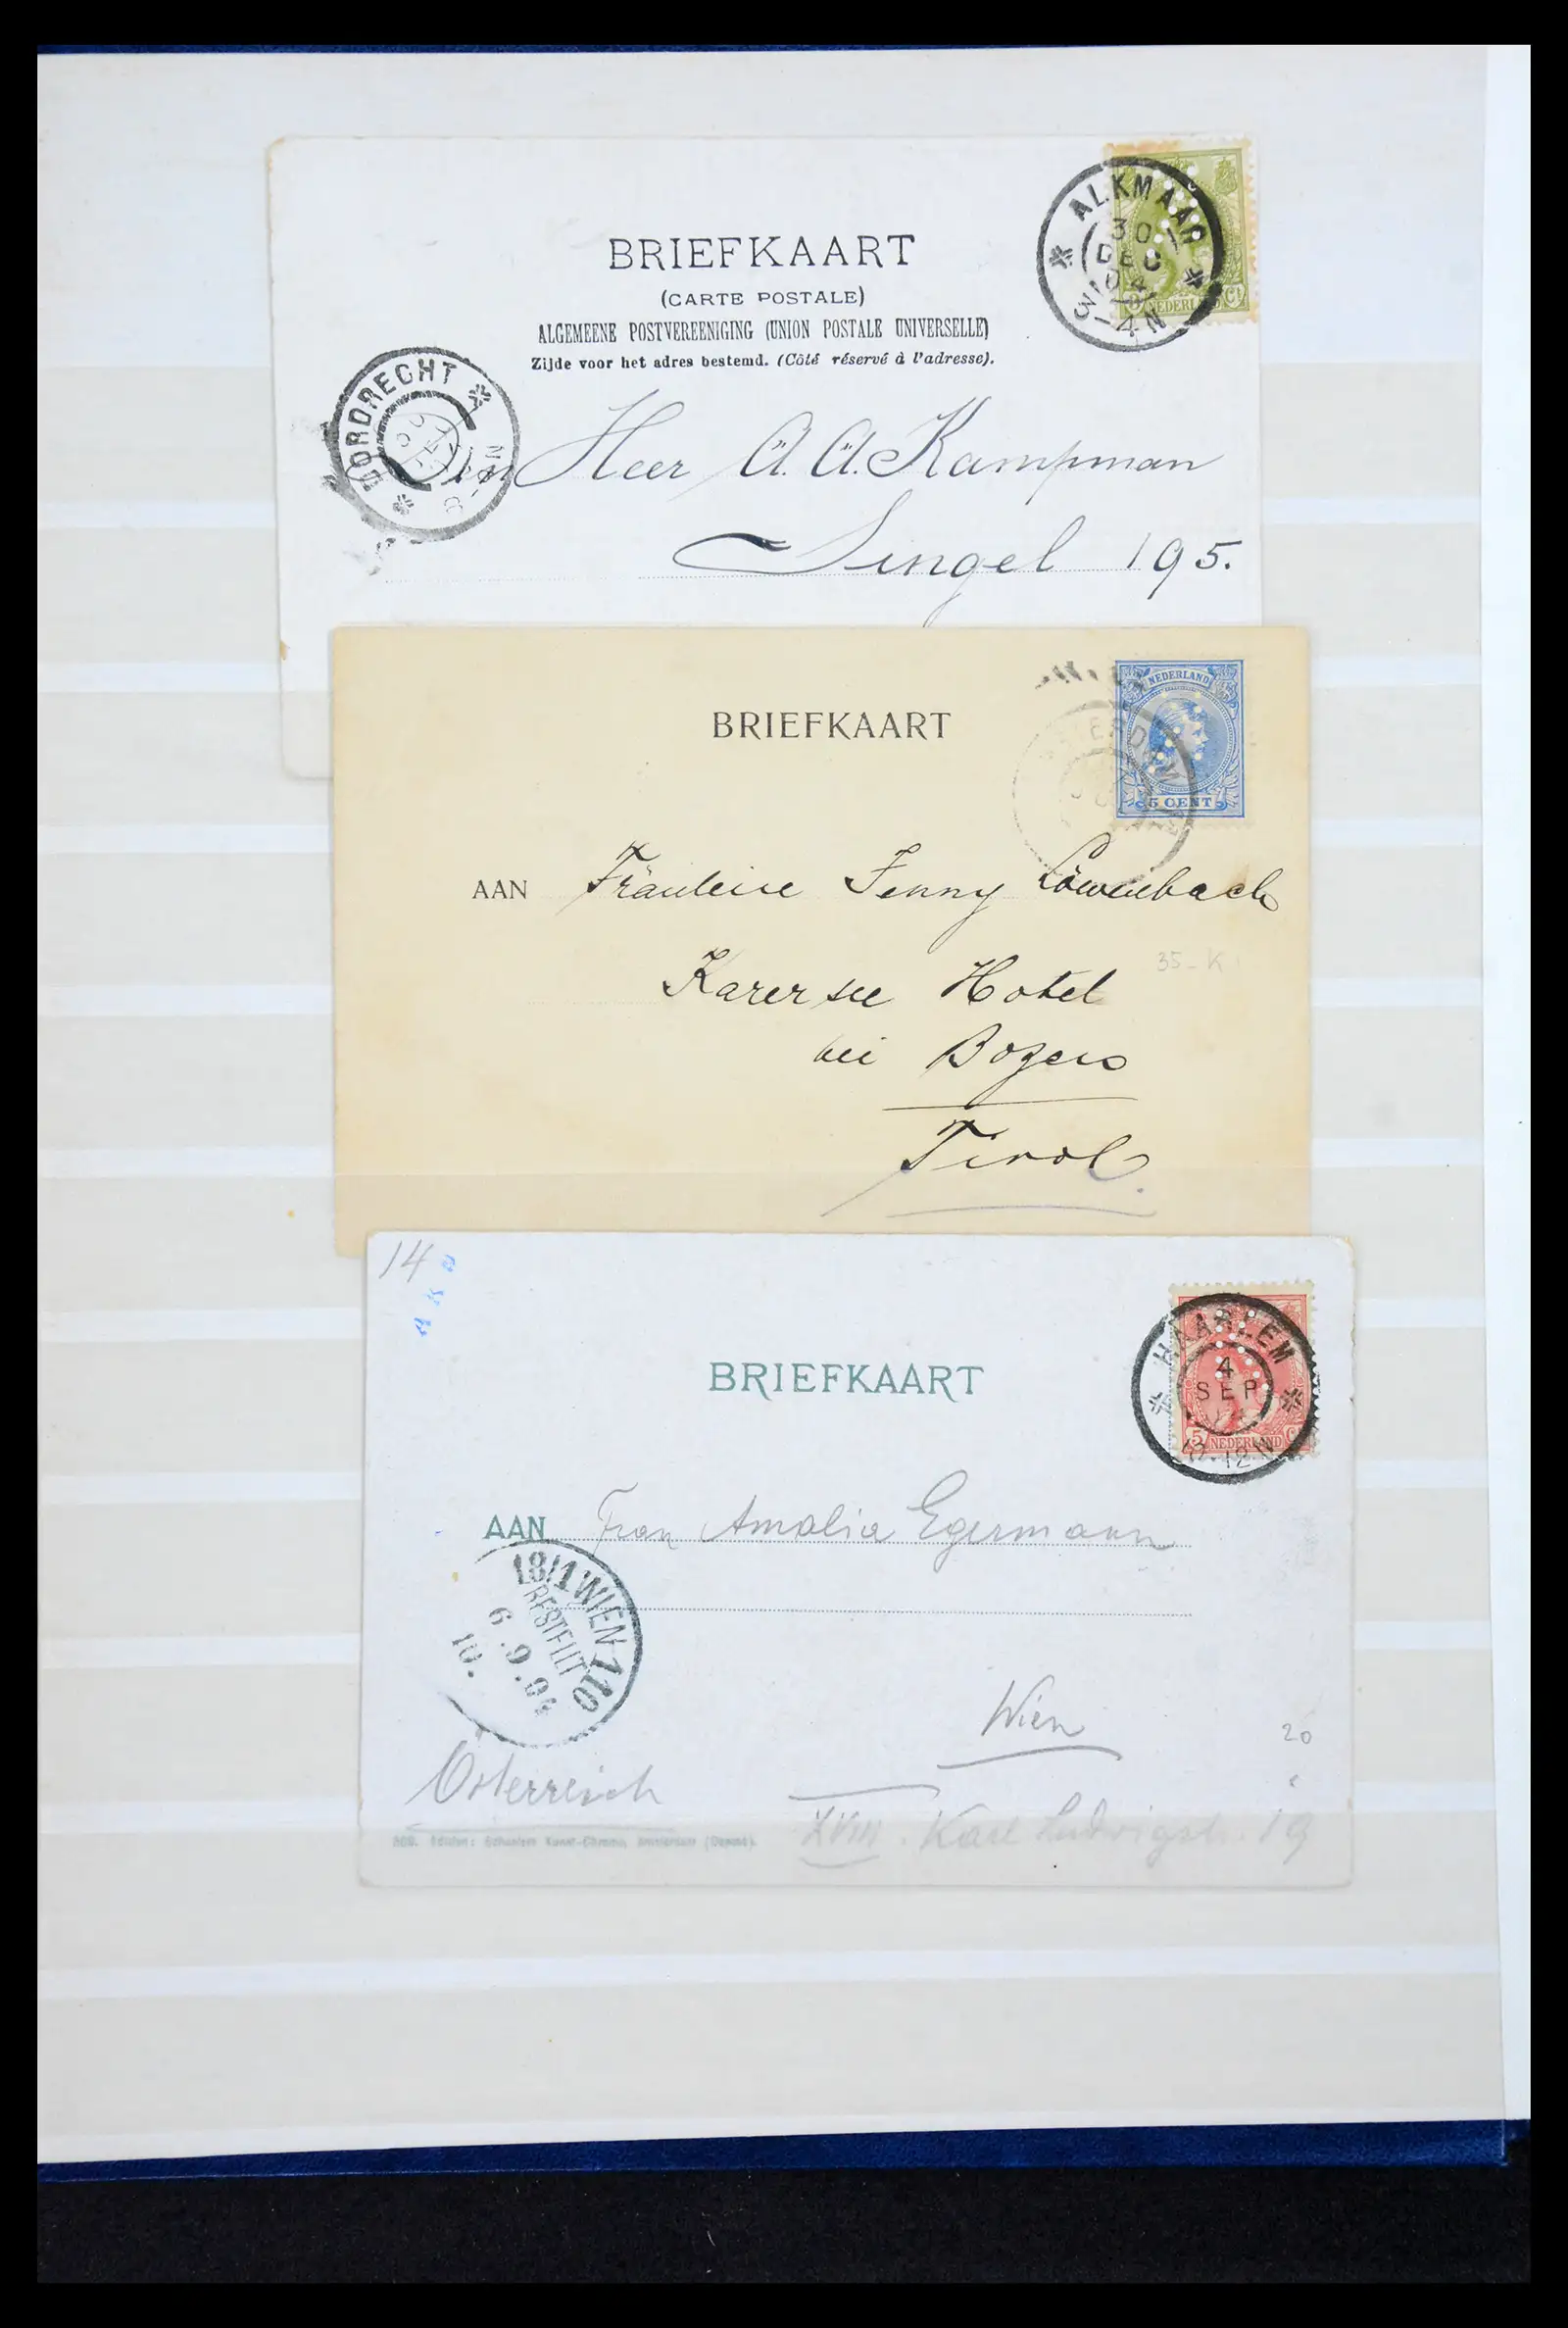 BRIEFKAART
(CARTE POSTALE)
ALGEMEENE POSTVEREENIGING (UNION POSTALE UNIVERSELLE)
Zijde voor het adres bestemd. (Côté réservé à l'adresse).
ALKMAAR
30
DEC
04
3-4N
NEDERL
Ct
DORDRECHT
Den Heer A. A. Kampman
Singel 195.
BRIEFKAART
NEDERLAND
5 CENT
AAN Fräulein Jenny Löwenbach
35-K
Karersee Hotel
bei Bozen
Tirol.
14
BRIEFKAART
HAARLEM
4
SEP
5 NEDERLAND C
AAN Frau Amalia Egermann
18/1 WIEN 110
BESTELLT
6.9.04
10.
Wien
20
Österreich
XVIII. Karl Ludwigstr. 19